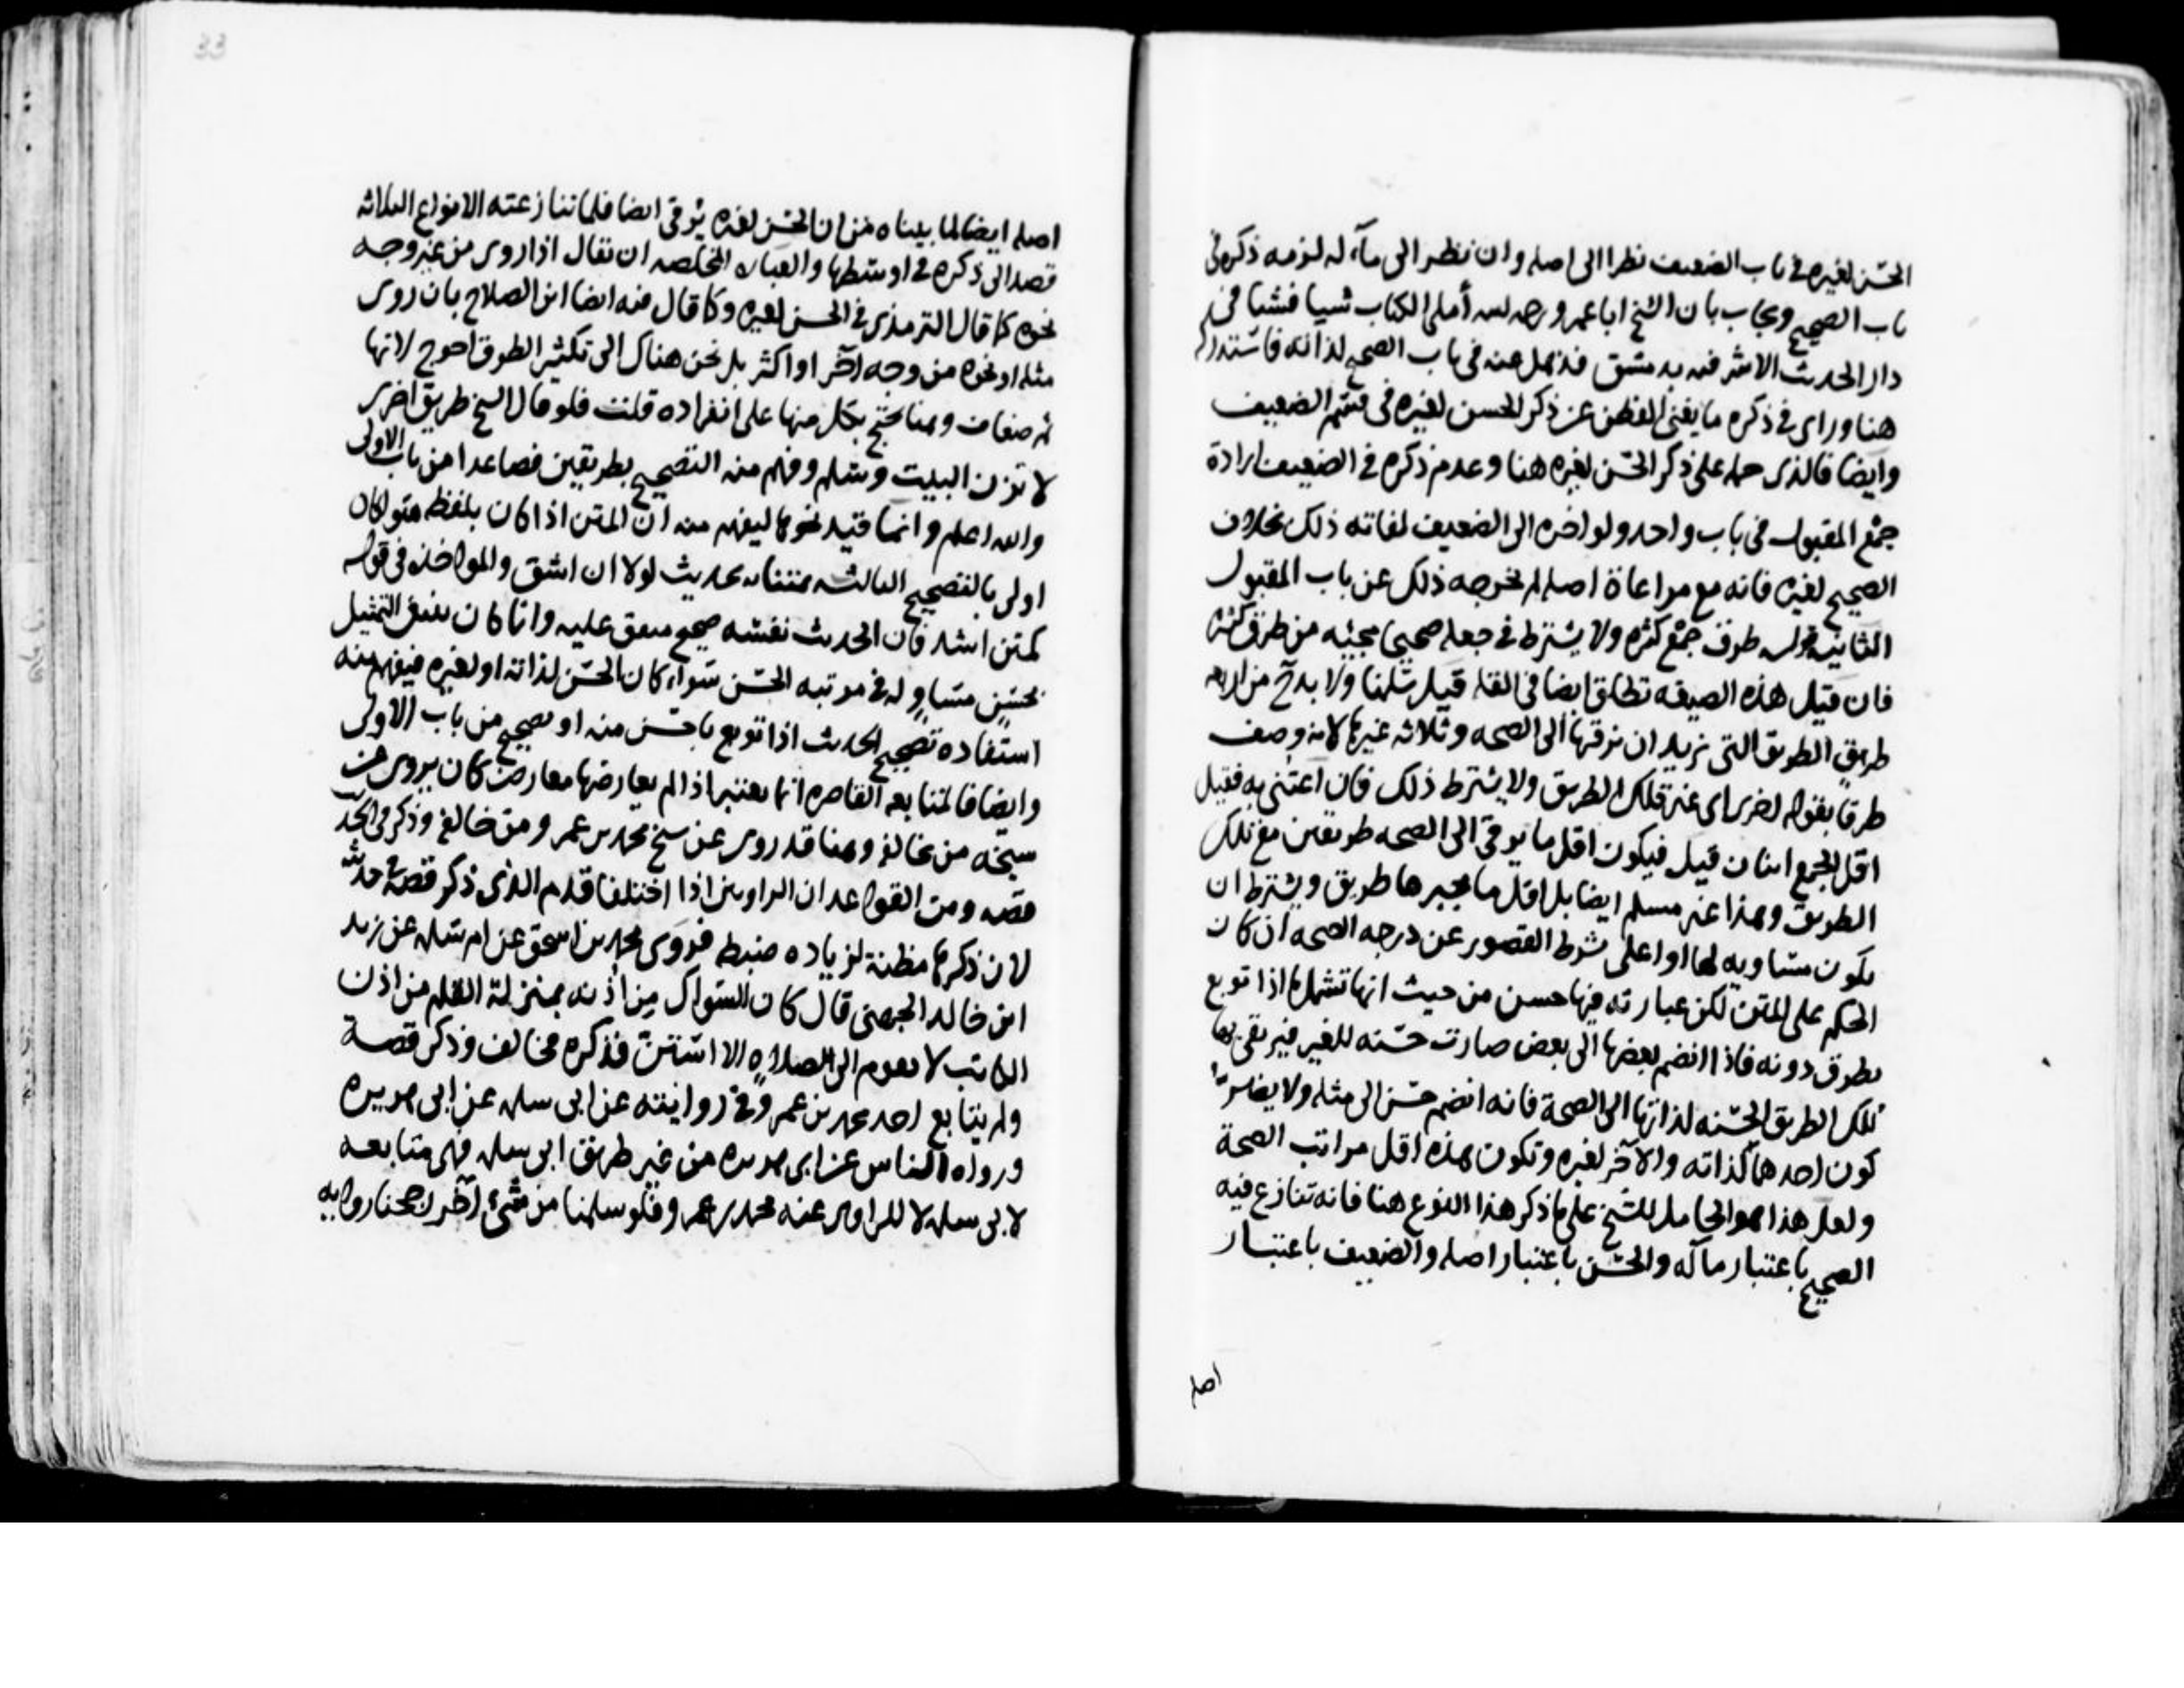 الحسن لغيره في باب الضعيف نظرا الى اصله وان نظر الى مآله لزمه ذكره في
باب الصحيح ويجاب بان الشيخ ابا عمرو رحمه الله أملى الكتاب شيا فشيا في
دار الحديث الاشرفيه بدمشق فذهل عنه في باب الصحيح لذاته فاستدركه
هنا وراى في ذكره ما يغني الفطن عن ذكر الحسن لغيره في قسم الضعيف
وايضا فالذي حمله على ذكر الحسن لغيره هنا وعدم ذكره في الضعيف ارادة
جمع المقبول في باب واحد ولو اخره الى الضعيف لفاته ذلك بخلاف
الصحيح لغيره فانه مع مراعاة اصله لم يخرجه ذلك عن باب المقبول
الثانيه قوله طرق جمع كثره ولا يشترط في جعله صحيحا مجيئه من طرق كثيره
فان قيل هذه الصيغه تطلق ايضا في القله قيل سلمنا ولا بد من اربعه
طريق الطريق التي نريد ان نرقيها الى الصحه وثلاثه غيرها لانه وصف
طرقا بقوله اخرى اي غير تلك الطريق ولا يشترط ذلك فان اعتني به فقيل
اقل الجمع اثنان قيل فيكون اقل ما يرقى الى الصحه طريقين مع تلك
الطريق وهذا غير مسلم ايضا بل اقل ما يجبرها طريق ويشترط ان
يكون مساويه لها او اعلى شرط القصور عن درجه الصحه ان كان
الحكم على المتن لكن عبارته فيها حسن من حيث انها تشمل ما اذا توبع
بطرق دونه فاذا انضم بعضها الى بعض صارت حسنه للغير فيرتقي بها
تلك الطريق الحسنه لذاتها الى الصحة فانه انضم حسن الى مثله ولا يضر
كون احدهما لذاته والآخر لغيره وتكون هذه اقل مراتب الصحة
ولعل هذا هو الحامل للشيخ على ما ذكر هذا النوع هنا فانه تنازع فيه
الصحيح باعتبار مآله والحسن باعتبار اصله والضعيف باعتبار
اصله
33
اصله ايضا لما بيناه من ان الحسن لغيره يرقى ايضا فلما تنازعته الانواع الثلاثه
قصد الى ذكره في اوسطها والعباره المخلصه ان يقال اذا روى من غير وجه
نحوه كما قال الترمذي في الحسن لغيره وكما قال فيه ايضا ابن الصلاح بان روى
مثله او نحوه من وجه آخر او اكثر بل نحن هناك الى تكثير الطرق احوج لانها
ثم ضعاف وهنا يحتج بكل منها على انفراده قلت فلو قال الشيخ طريق اخرى
لا تزن البيت وسلم وفهم منه التصحيح بطريقين فصاعدا من باب الاولى
والله اعلم وانما قيد بنحوها ليفهم منه ان المتن اذا كان بلفظه هو كان
اولى بالتصحيح الثالثه تمثيله بحديث لولا ان اشق والمواخذه في قوله
كمتن اشد فان الحديث نفسه صحيح متفق عليه وانما كان ينبغي التمثيل
بحسن مساو له في مرتبه الحسن سواء كان الحسن لذاته او لغيره فيفهم منه
استفاده تصحيح الحديث اذا توبع باحسن منه او بصحيح من باب الاولى
وايضا فالمتابعه القاصره انما تعتبر اذا لم يعارضها معارض كان يروى عن
شيخه من خالفه وهنا قد روى عن شيخ محمد بن عمرو من خالفه وذكر في الحديث
قصه ومن القواعد ان الراويين اذا اختلفا قدم الذي ذكر قصه في حديثه
لان ذكرها مظنة لزياده ضبط فروى محمد بن اسحق عن ابي سلمه عن زيد
ابن خالد الجهني قال كان السواك من اذنه بمنزلة القلم من اذن
الكاتب لا يقوم الى الصلاه الا استن فذكره مخالف وذكر قصة
ولم يتابع احد محمد بن عمرو في روايته عن ابي سلمه عن ابي هريره
ورواه الناس عن ابي هريره من غير طريق ابي سلمه فهي متابعه
لابي سلمه لا للراوي عنه محمد بن عمرو فلو سلمنا من شيء آخر لرجحنا روايه